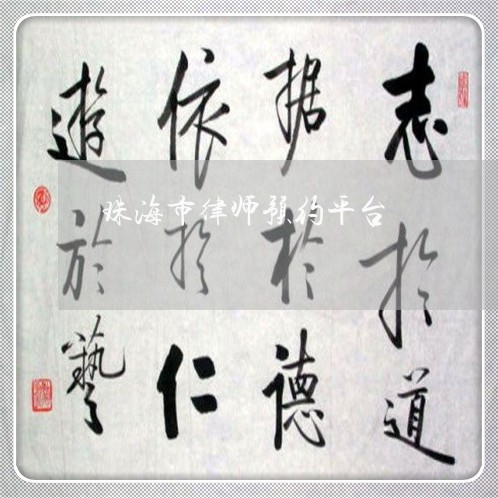 志於道
据於德
依於仁
遊於藝
珠海市律师预约平台